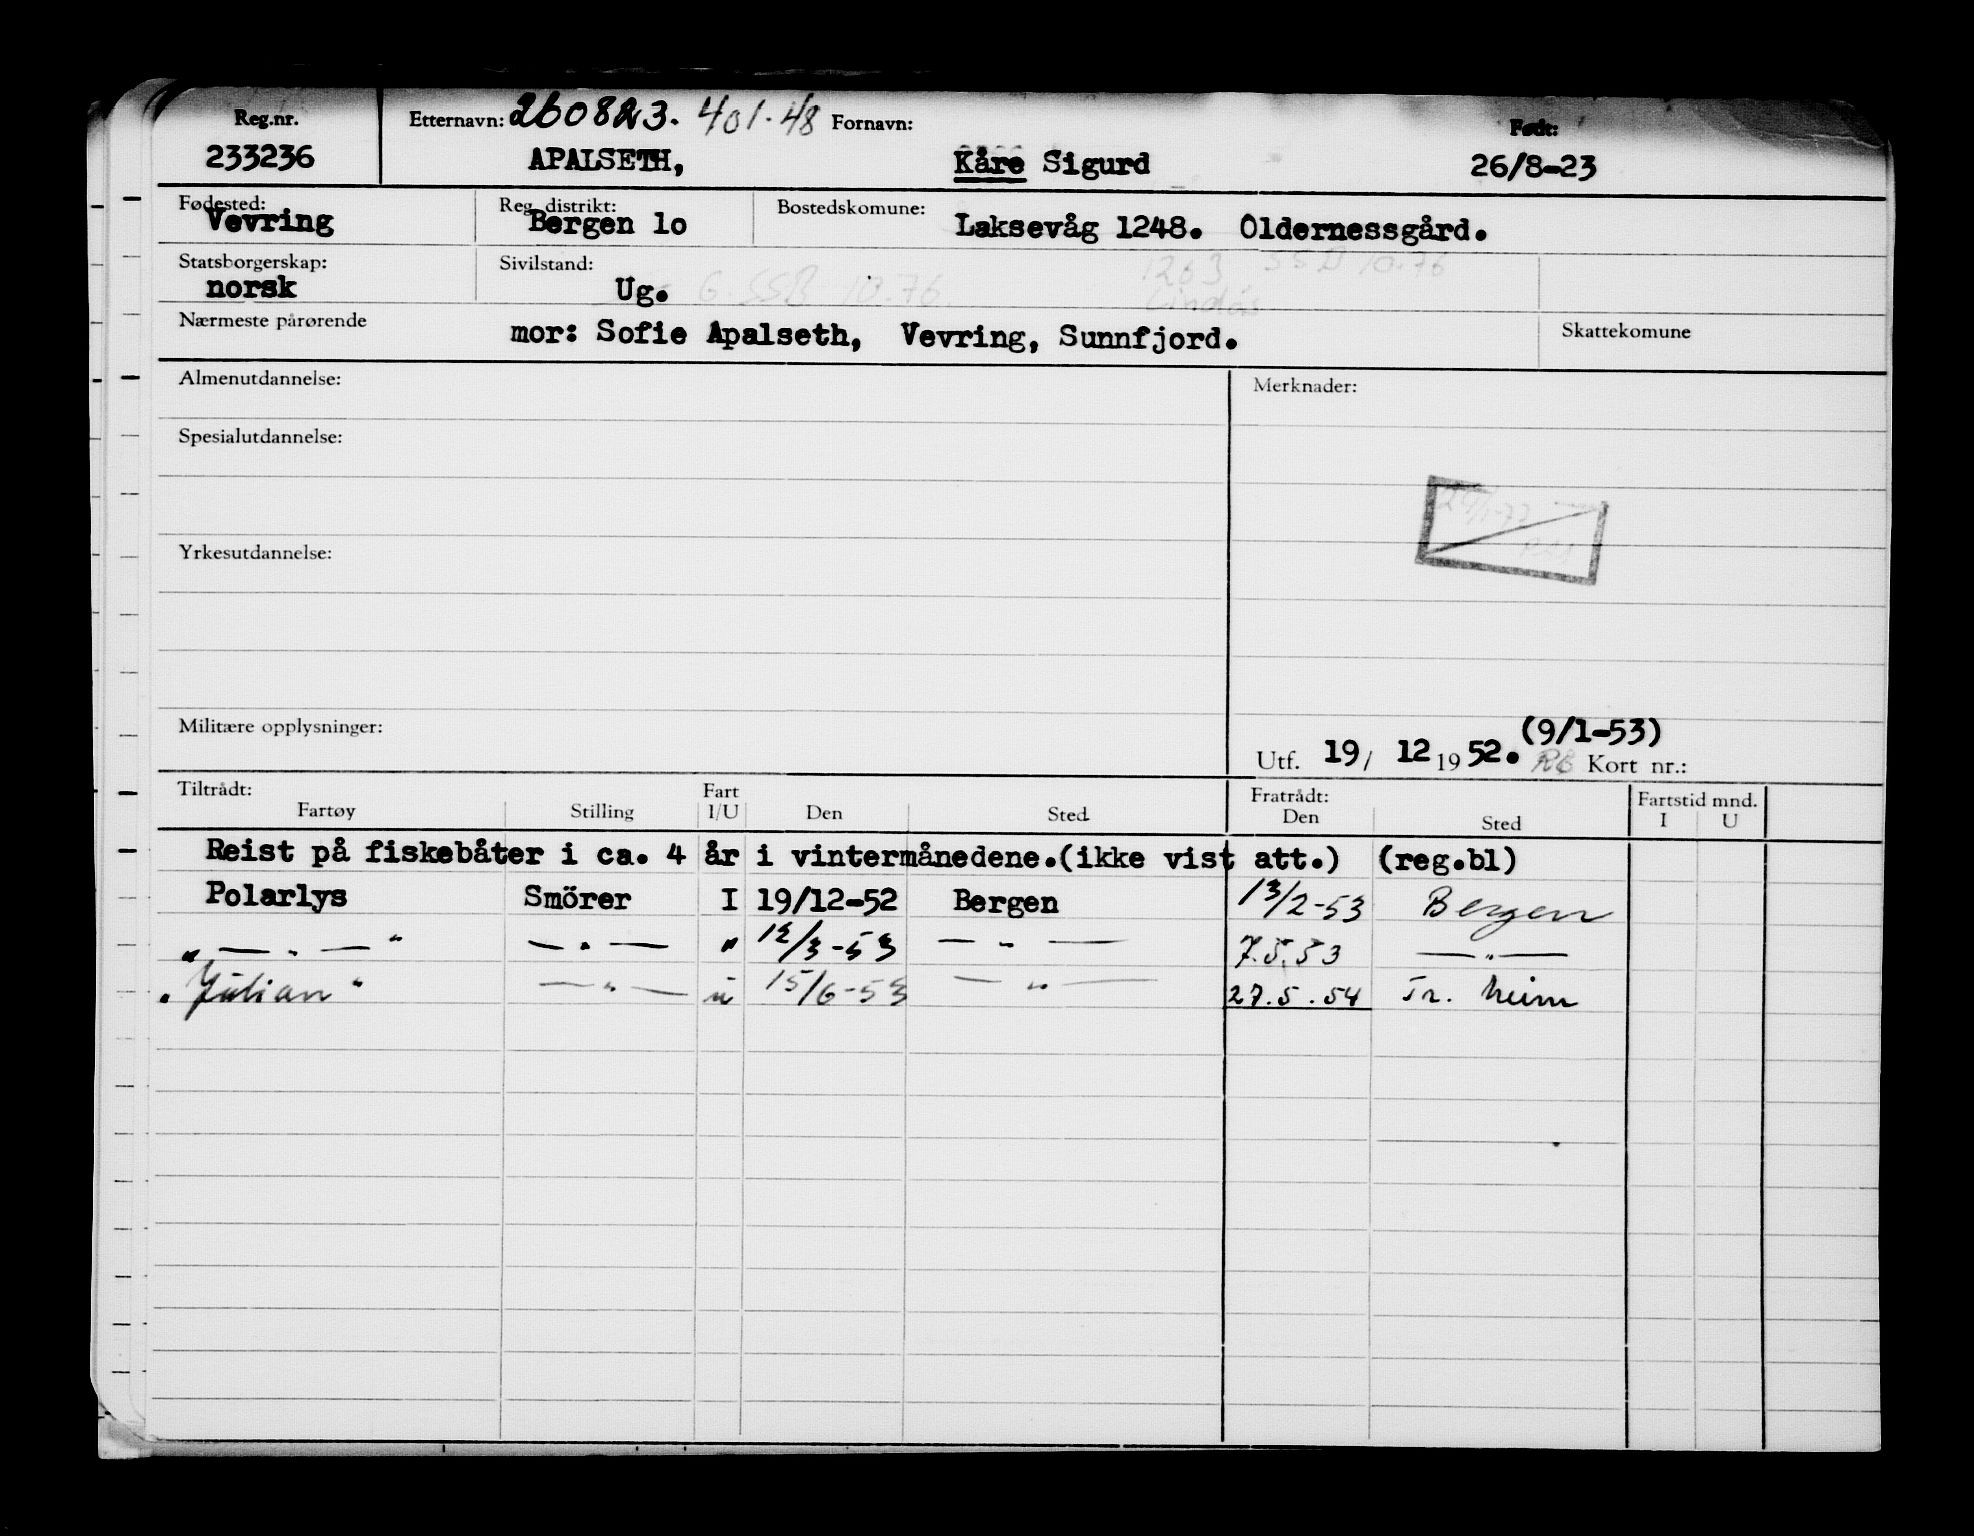 Reg.nr. Etternavn: 260823. 401.48 Fornavn: Født:
233236 APALSETH, Kåre Sigurd 26/8-23
Fødested: Reg. distrikt: Bostedskomune:
Vevring Bergen 1o Laksevåg 1248. Oldernessgård.
Statsborgerskap: Sivilstand: 1263 SSB 10.76
norsk Ug. G. SSB 10.76. Lindås
Nærmeste pårørende mor: Sofie Apalseth, Vevring, Sunnfjord. Skattekomune
Almenutdannelse: Merknader:
Spesialutdannelse:
Yrkesutdannelse:
Militære opplysninger: (9/1-53)
Utf. 19/ 12 19 52. Kort nr.:
Tiltrådt: Fart Fratrådt: Fartstid mnd.
Fartøy Stilling I/U Den Sted Den Sted I U
Reist på fiskebåter i ca. 4 år i vintermånedene.(ikke vist att.) (reg.bl)
Polarlys Smörer I 19/12-52 Bergen 13/2-53 Bergen
„ — . — " — " — " 12/3-53 — " — 7.5.53 — " —
"Julian" — " — u 15/6-53 — " — 27.5.54 Tr. heim